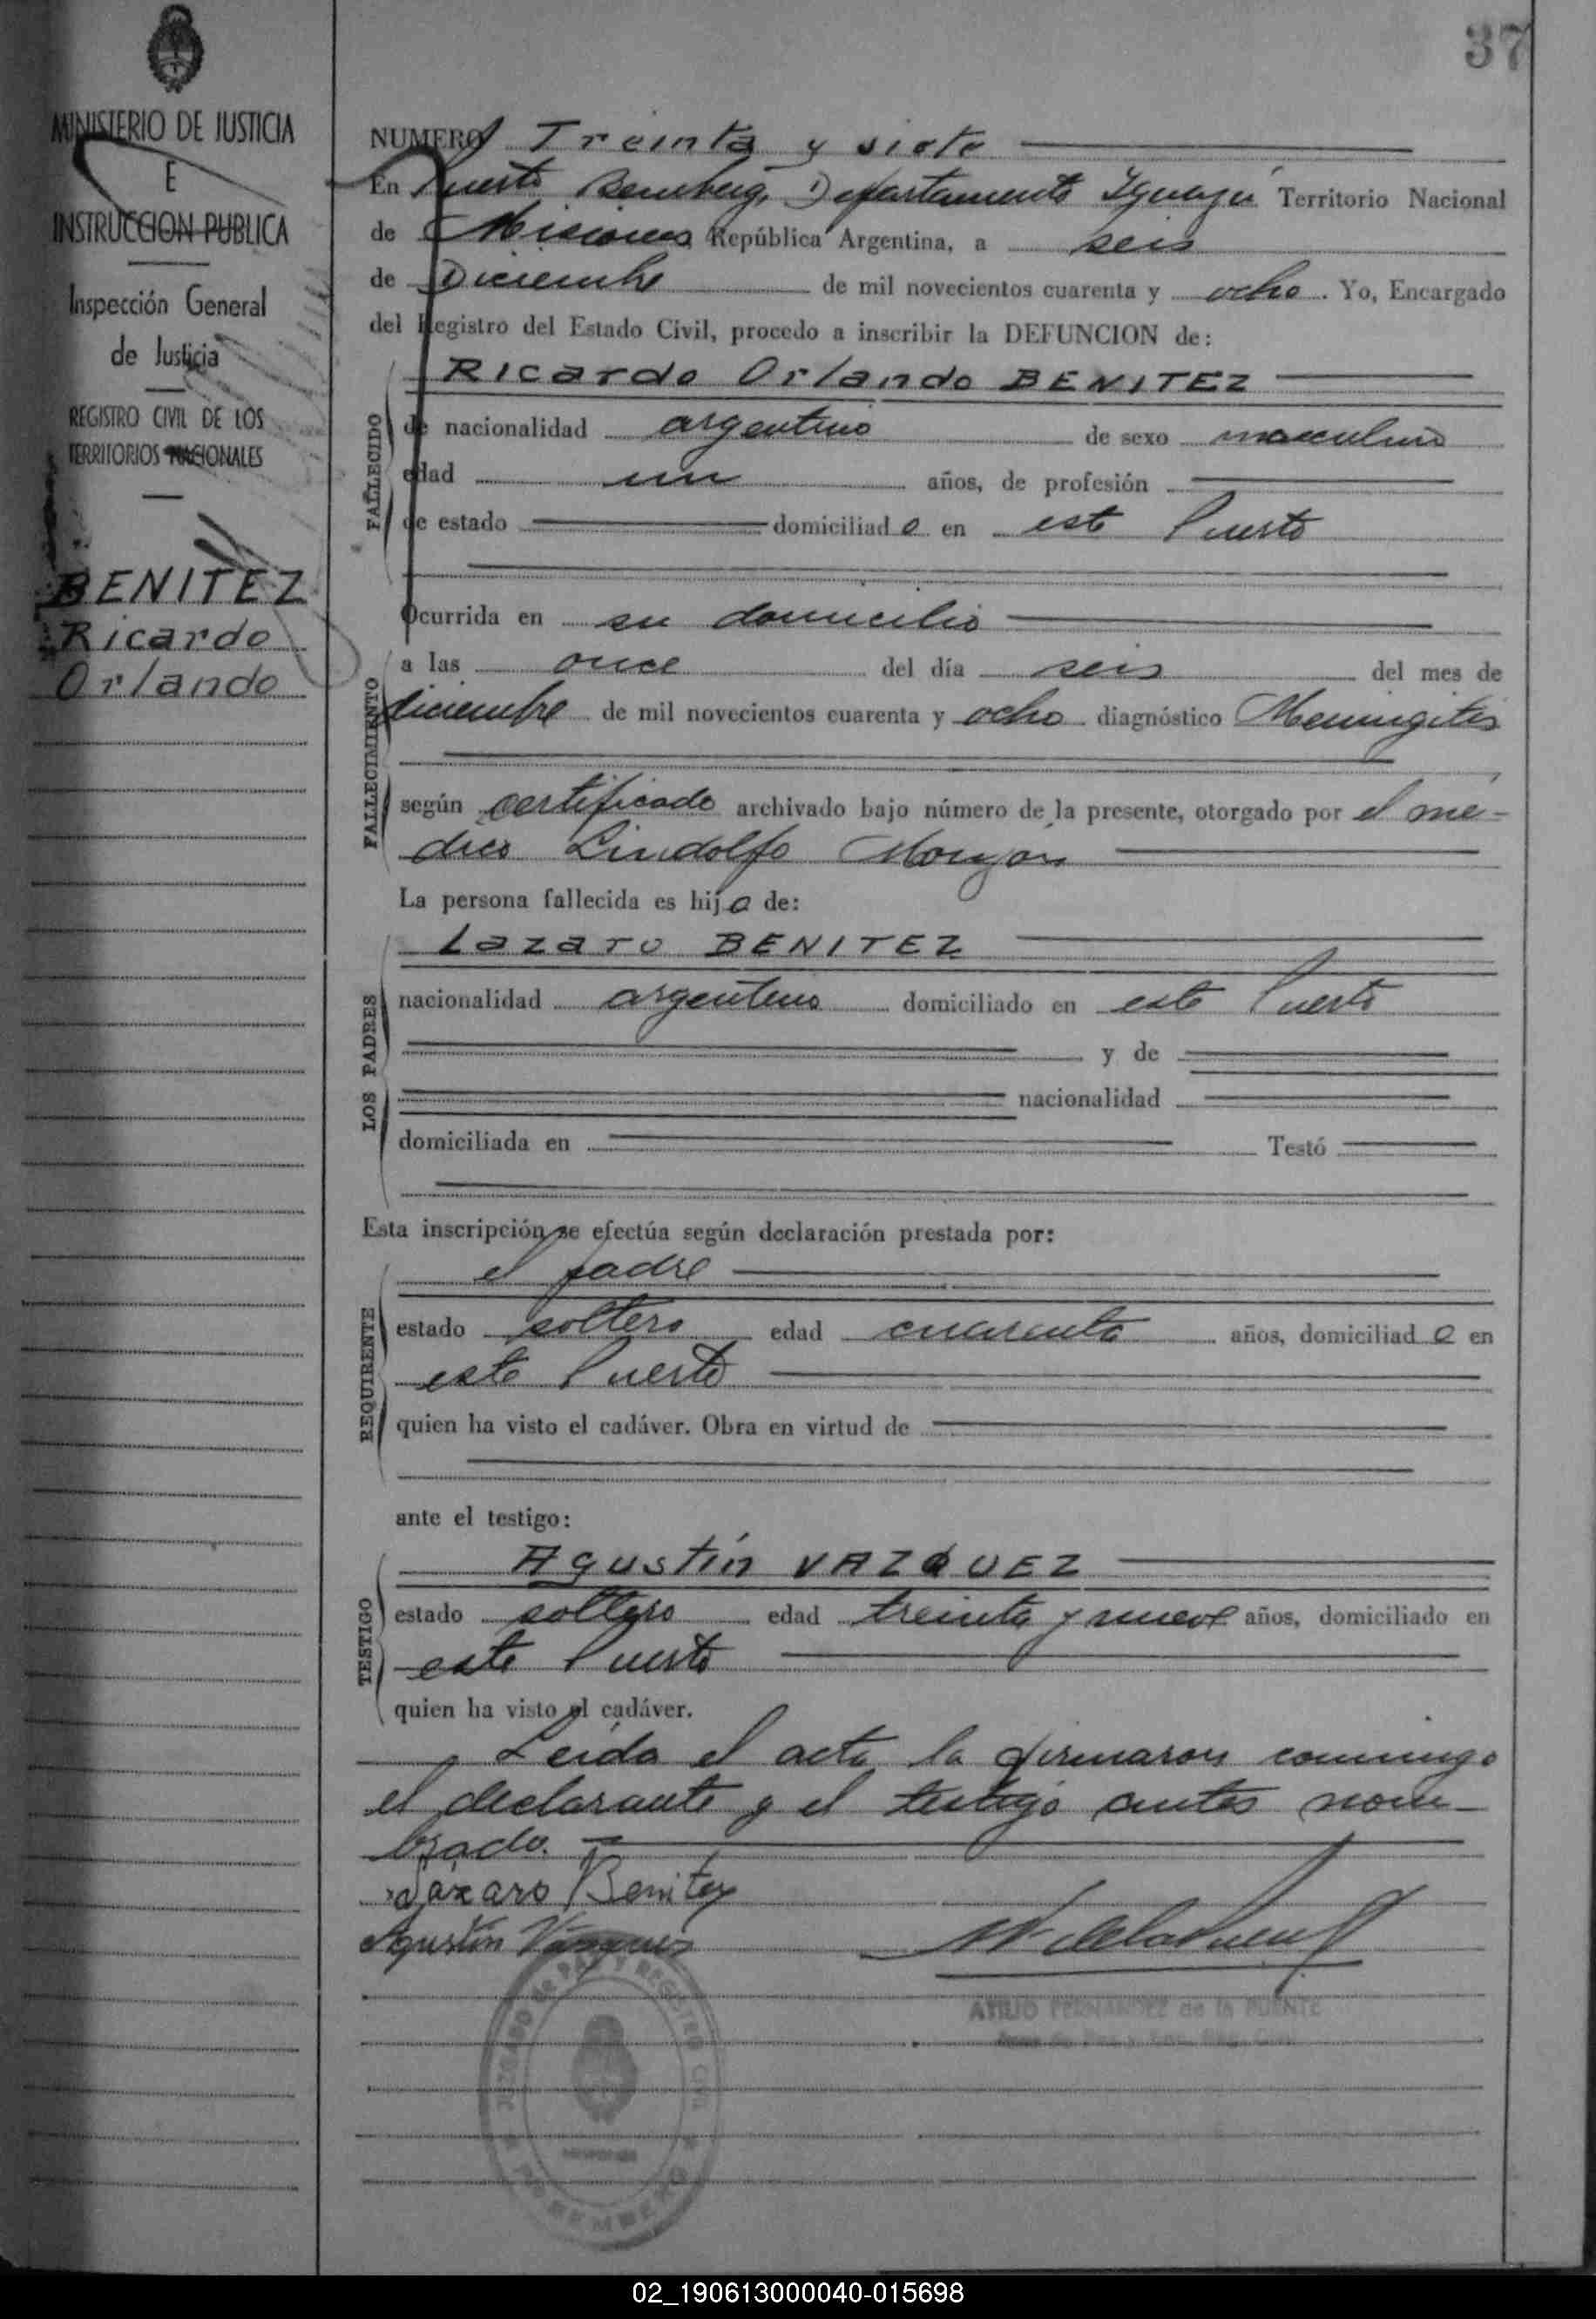 37
MINISTERIO DE JUSTICIA
E
INSTRUCCION PUBLICA
Inspección General
de Justicia
REGISTRO CIVIL DE LOS
TERRITORIOS NACIONALES
BENITEZ
Ricardo
Orlando
NUMERO Treinta y siete
En Puerto Bemberg, Departamento Iguazú Territorio Nacional
de Misiones República Argentina, a seis
de Diciembre de mil novecientos cuarenta y ocho. Yo, Encargado
del Registro del Estado Civil, procedo a inscribir la DEFUNCION de:
FALLECIDO
Ricardo Orlando BENITEZ
de nacionalidad argentino de sexo masculino
edad un años, de profesión
de estado domiciliado en este Puerto
Ocurrida en su domicilio
FALLECIMIENTO
a las once del día seis del mes de
diciembre de mil novecientos cuarenta y ocho diagnóstico Meningitis
según certificado archivado bajo número de la presente, otorgado por el mé-
dico Lindolfo Monzon
La persona fallecida es hijo de:
LOS PADRES
Lazaro BENITEZ
nacionalidad argentino domiciliado en este Puerto
y de
nacionalidad
domiciliada en Testó
Esta inscripción se efectúa según declaración prestada por:
REQUIRENTE
el padre
estado soltero edad cuarenta años, domiciliado en
este Puerto
quien ha visto el cadáver. Obra en virtud de
ante el testigo:
TESTIGO
Agustín VAZQUEZ
estado soltero edad treinta y nueve años, domiciliado en
este Puerto
quien ha visto el cadáver.
Leída el acta la firmaron conmigo
el declarante y el testigo antes nom-
brado.
Lazaro Benitez
Agustín Vazquez
ATILIO FERNANDEZ de la PUENTE
JUZGADO DE PAZ Y REGISTRO CIVIL
BEMBERG
02_190613000040-015698